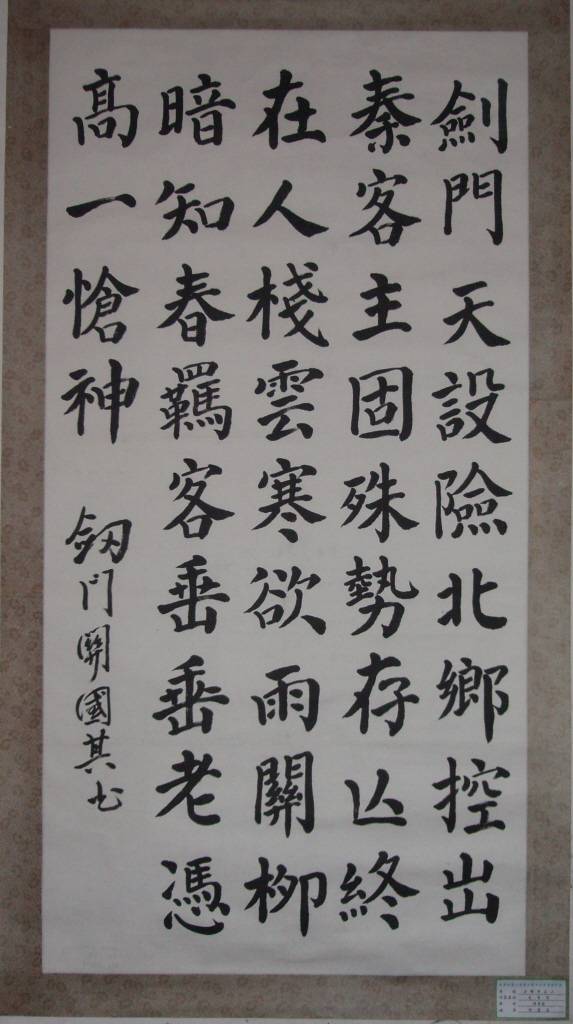 劍門天設險北鄉控出
秦客主固殊勢存亾終
在人棧雲寒欲雨關柳
暗知春羈客垂垂老憑
高一愴神
劔門關國其书